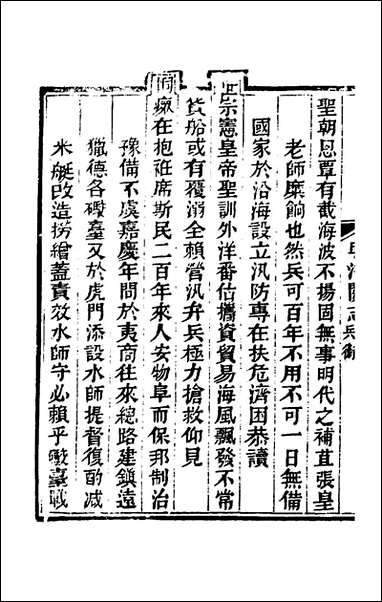 聖朝恩覃有截海波不揚固無事明代之補苴張皇
老師糜餉也然兵可百年不用不可一日無備
國家於沿海設立汛防專在扶危濟困恭讀
世宗憲皇帝聖訓外洋番估攜資貿易海風飄發不常
貨船或有覆溺全賴營汛弁兵極力搶救仰見
痌瘝在抱袵席斯民二百年來人安物阜而保邦制治
豫備不虞嘉慶年間於夷商往來總路建鎮遠
獵德各礮臺又於虎門添設水師提督復酌减
米艇改造撈繒蓋責效水師守必賴乎礮臺戰
粤海關志兵衛